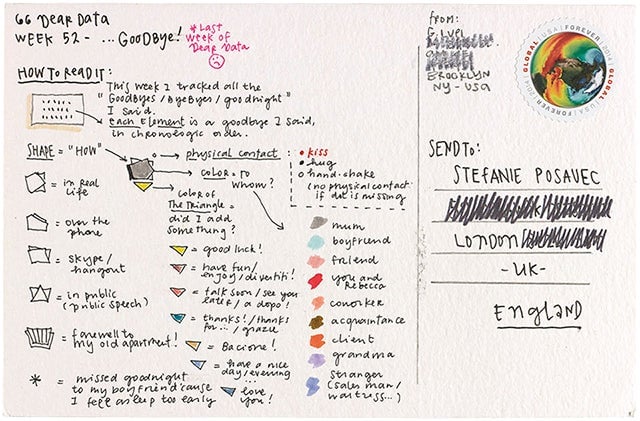 66 DEAR DATA
WEEK 52 - ... GOODBYE!
* LAST
WEEK OF
DEAR DATA
HOW TO READ IT:
This week I tracked all the
"GOODBYES / BYEBYES / goodnight"
I said.
Each Element is a goodbye I said,
in chronologic order.
SHAPE = "HOW"
= in real
life
= over the
phone
= skype/
hangout
= in public
(public speech)
= farewell to
my old apartment!
* = missed goodnight
to my boyfriend 'cause
I fell asleep too early
physical contact:
• kiss
• hug
o hand-shake
(no physical contact
if dot is missing
COLOR = TO
WHOM?
COLOR OF
The TRIANGLE =
did I add
something?
= good luck!
= have fun/
enjoy/divertiti!
= talk soon/see you
later/a dopo!
= thanks!/thanks
for.../grazie
= Bacione!
= have a nice
day/evening
...
= love
you!
mum
boyfriend
friend
you and
Rebecca
coworker
acquaintance
client
grandma
stranger
(sales man/
waitress...)
FROM:
BROOKLYN
NY - USA
GLOBAL USA FOREVER
SEND TO:
STEFANIE POSAVEC
LONDON
- UK -
ENGLAND